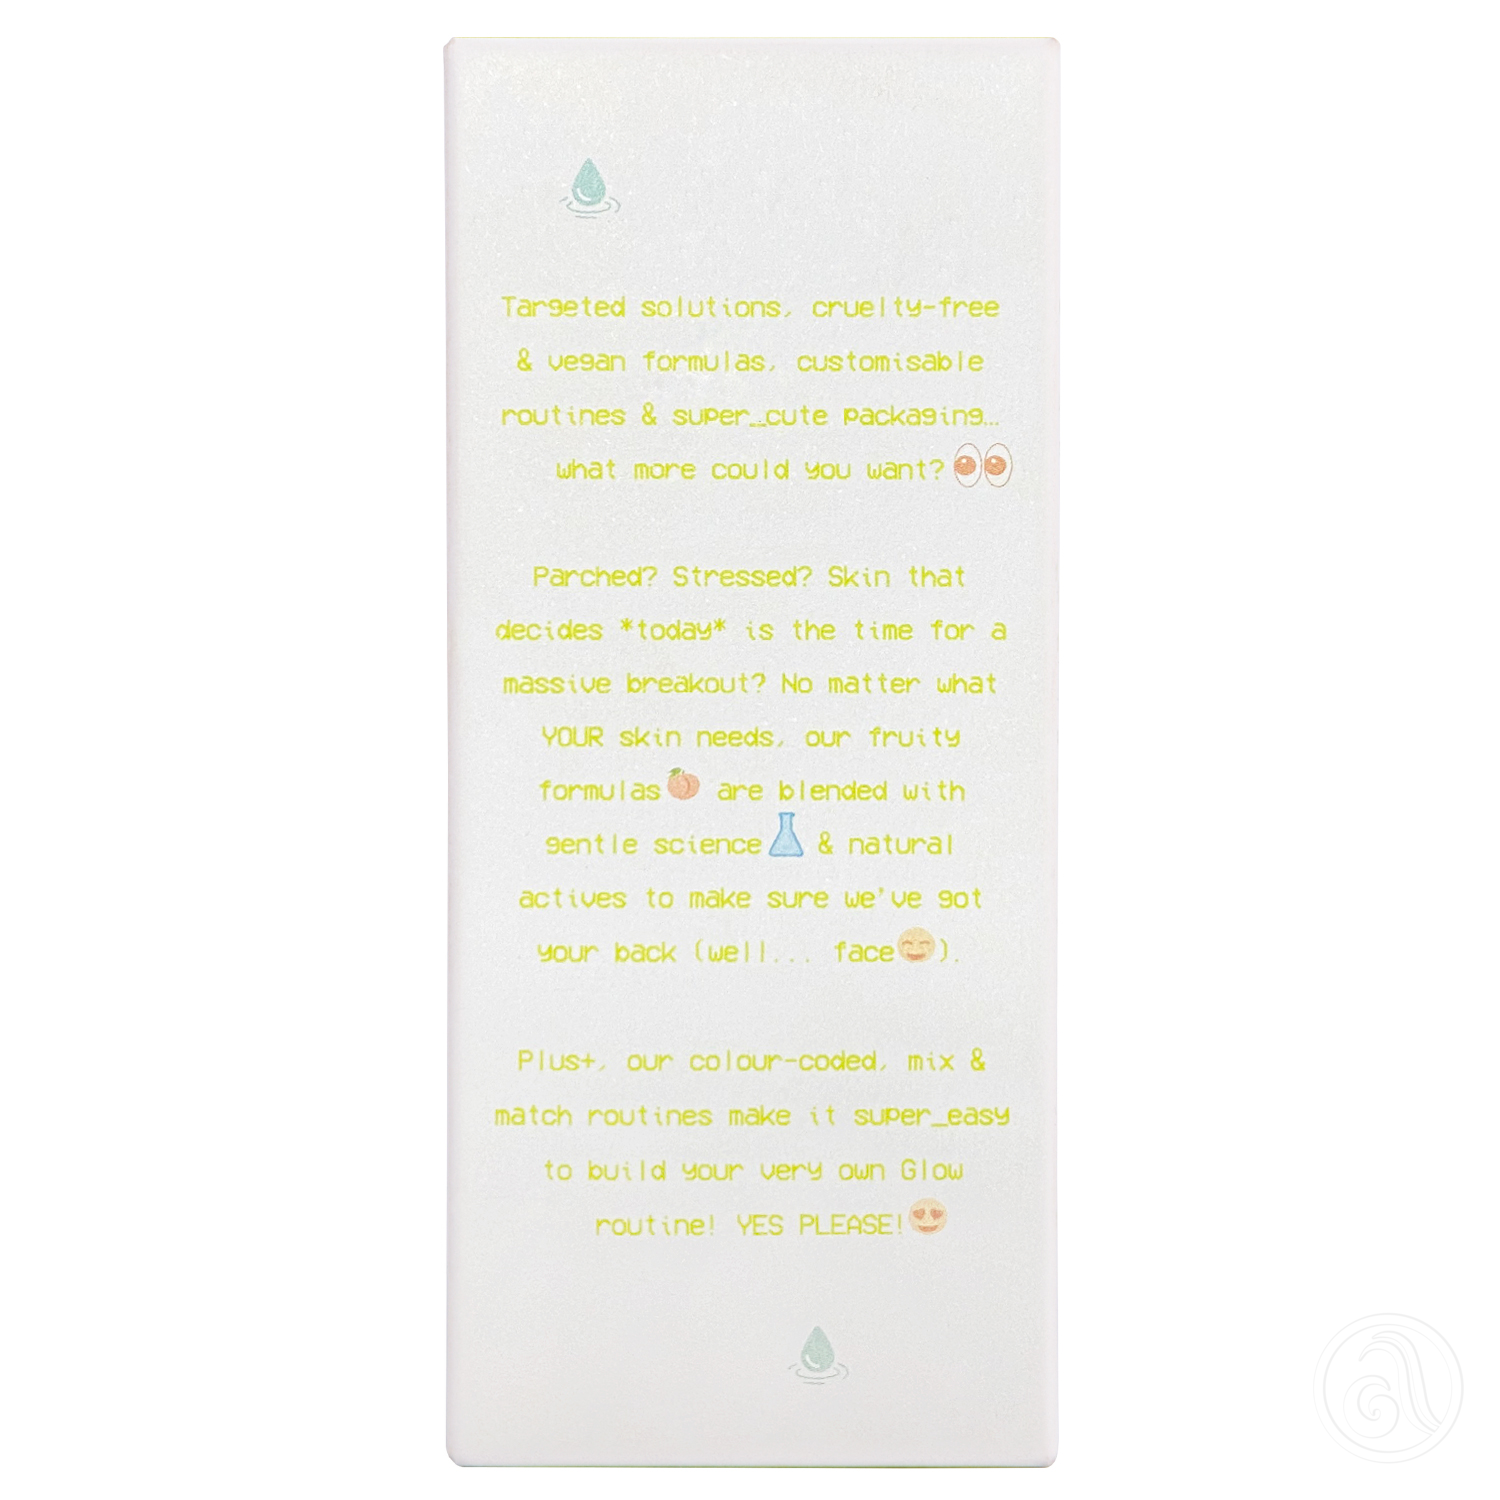 Targeted solutions, cruelty-free
& vegan formulas, customisable
routines & super_cute packaging...
what more could you want?
Parched? Stressed? Skin that
decides *today* is the time for a
massive breakout? No matter what
YOUR skin needs, our fruity
formulas are blended with
gentle science & natural
actives to make sure we've got
your back (well... face).
Plus+, our colour-coded, mix &
match routines make it super_easy
to build your very own Glow
routine! YES PLEASE!